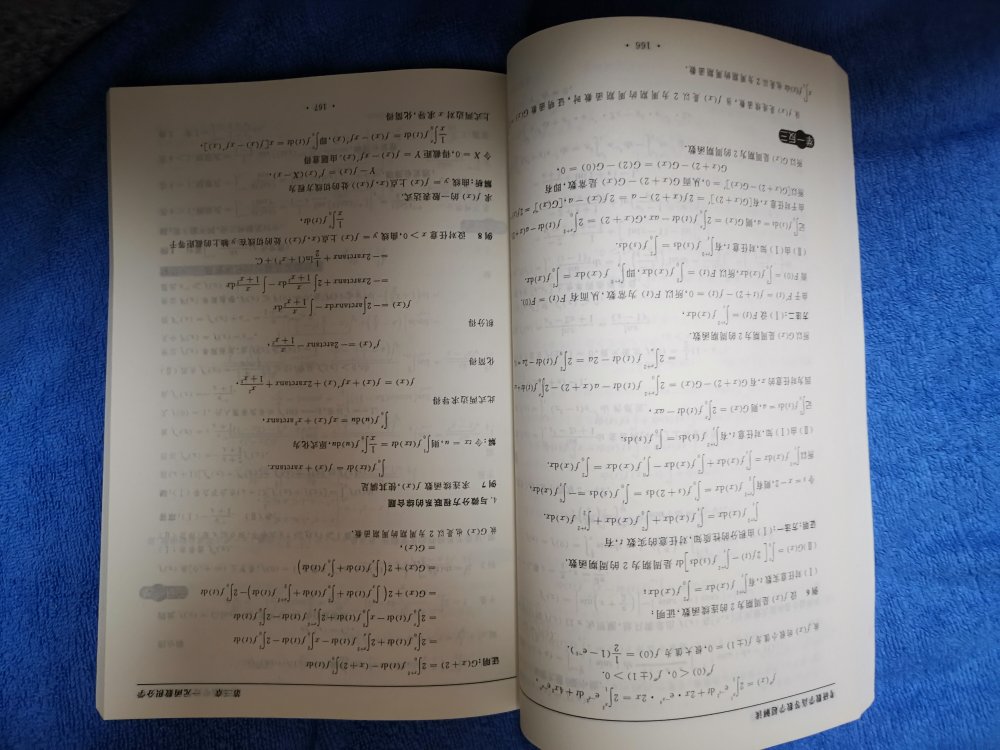 考研数学高等数学超解读
f″(x) = 2∫₁^{x²} e^{-t²}dt + 2x·e^{-x⁴}·2x = 2∫₁^{x²} e^{-t²}dt + 4x²e^{-x⁴},
f″(0) < 0, f″(±1) > 0.
故 f(x) 的极小值为 f(±1) = 0,极大值为 f(0) = 1/2(1-e⁻¹).
例 6 设 f(x) 是周期为 2 的连续函数,证明:
(Ⅰ) 对任意实数 t,有∫ₜ^{t+2} f(x)dx = ∫₀² f(x)dx;
(Ⅱ) G(x) = ∫₀ˣ[2f(t) - ∫ₜ^{t+2} f(s)ds]dt 是周期为 2 的周期函数.
证明:方法一:(Ⅰ) 由积分的性质知,对任意的实数 t,有
∫ₜ^{t+2} f(x)dx = ∫ₜ⁰ f(x)dx + ∫₀² f(x)dx + ∫₂^{t+2} f(x)dx.
令 s = x - 2,则有∫₂^{t+2} f(x)dx = ∫₀ᵗ f(s+2)ds = ∫₀ᵗ f(s)ds = -∫ₜ⁰ f(x)dx,
所以 ∫ₜ^{t+2} f(x)dx = ∫ₜ⁰ f(x)dx + ∫₀² f(x)dx - ∫ₜ⁰ f(x)dx = ∫₀² f(x)dx.
(Ⅱ) 由(Ⅰ) 知,对任意 t,有∫ₜ^{t+2} f(s)ds = ∫₀² f(s)ds.
记∫₀² f(s)ds = a,则 G(x) = 2∫₀ˣ f(t)dt - ax.
因为对任意的 x,有 G(x+2) - G(x) = 2∫₀^{x+2} f(t)dt - a(x+2) - 2∫₀ˣ f(t)dt + ax
= 2∫ₓ^{x+2} f(t)dt - 2a = 2∫₀² f(t)dt - 2a = 0,
所以 G(x) 是周期为 2 的周期函数.
方法二:(Ⅰ) 设 F(t) = ∫ₜ^{t+2} f(x)dx,
由于 F′(t) = f(t+2) - f(t) = 0,所以 F(t) 为常数,从而有 F(t) = F(0).
而 F(0) = ∫₀² f(x)dx,所以 F(t) = ∫₀² f(x)dx,即∫ₜ^{t+2} f(x)dx = ∫₀² f(x)dx.
(Ⅱ) 由(Ⅰ) 知,对任意 t,有∫ₜ^{t+2} f(s)ds = ∫₀² f(s)ds,
记∫₀² f(s)ds = a,则 G(x) = 2∫₀ˣ f(t)dt - ax,G(x+2) = 2∫₀^{x+2} f(t)dt - a(x+2)
由于对任意 x,有[G(x+2)]′ = 2f(x+2) - a = 2f(x) - a,[G(x)]′ = 2f(x)
所以[G(x+2) - G(x)]′ = 0,从而 G(x+2) - G(x) 是常数,即有
G(x+2) - G(x) = G(2) - G(0) = 0,
所以 G(x) 是周期为 2 的周期函数.
举一反三
设 f(x) 是连续函数,当 f(x) 是以 2 为周期的周期函数时,证明函数 G(x)
∫₀² f(t)dt 也是以 2 为周期的周期函数.
· 166 ·
第三章 一元函数积分学
证明:G(x+2) = 2∫₀^{x+2} f(t)dt - (x+2)∫₀² f(t)dt
= 2∫₀² f(t)dt + 2∫₂^{x+2} f(t)dt - x∫₀² f(t)dt - 2∫₀² f(t)dt
= 2∫₀ˣ f(t)dt - x∫₀² f(t)dt + 2∫ₓ^{x+2} f(t)dt - 2∫₀² f(t)dt
= G(x) + 2(∫ₓ⁰ f(t)dt + ∫₀² f(t)dt + ∫₂^{x+2} f(t)dt) - 2∫₀² f(t)dt
= G(x) + 2(∫ₓ⁰ f(t)dt + ∫₀ˣ f(t)dt)
= G(x),
故 G(x) 也是以 2 为周期的周期函数.
4. 与微分方程联系的综合题
例 7 求连续函数 f(x),使其满足
∫₀¹ f(tx)dt = f(x) + xarctanx.
解:令 tx = u,则∫₀¹ f(tx)dt = 1/x ∫₀ˣ f(u)du,原式化为
∫₀ˣ f(u)du = xf(x) + x²arctanx,
此式两边求导得
f(x) = f(x) + xf′(x) + 2xarctanx + x²/(1+x²).
化简得
f′(x) = -2arctanx - x/(1+x²),
积分得
f(x) = -2∫arctanxdx - ∫x/(1+x²)dx
= -2xarctanx + 2∫x/(1+x²)dx - ∫x/(1+x²)dx
= -2xarctanx + 1/2 ln(1+x²) + C.
例 8 设对任意 x > 0,曲线 y = f(x) 上点(x, f(x)) 处的切线在 y 轴上的截距等于
1/x ∫₀ˣ f(t)dt,
求 f(x) 的一般表达式.
解析:曲线 y = f(x) 上点(x, f(x)) 处的切线方程为
Y - f(x) = f′(x)(X - x).
令 X = 0,得截距 Y = f(x) - xf′(x),由题意得
1/x ∫₀ˣ f(t)dt = f(x) - xf′(x),即∫₀ˣ f(t)dt = x[f(x) - xf′(x)],
上式两边对 x 求导,化简得
· 167 ·